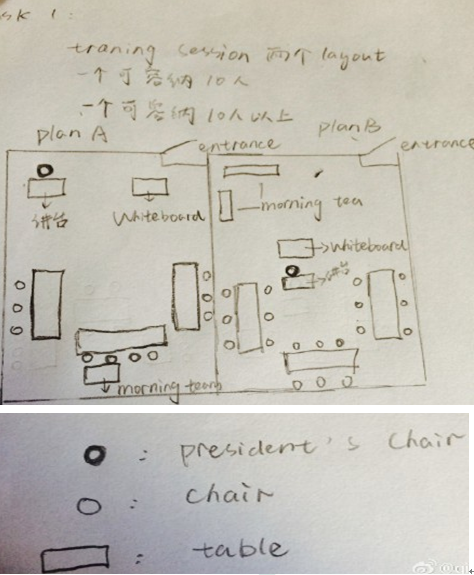 sk 1:
traning session 两个layout
一个可容纳10人
一个可容纳10人以上
plan A
entrance
plan B
entrance
讲台
Whiteboard
morning tea
Whiteboard
讲台
morning tea
: president's chair
: chair
: table